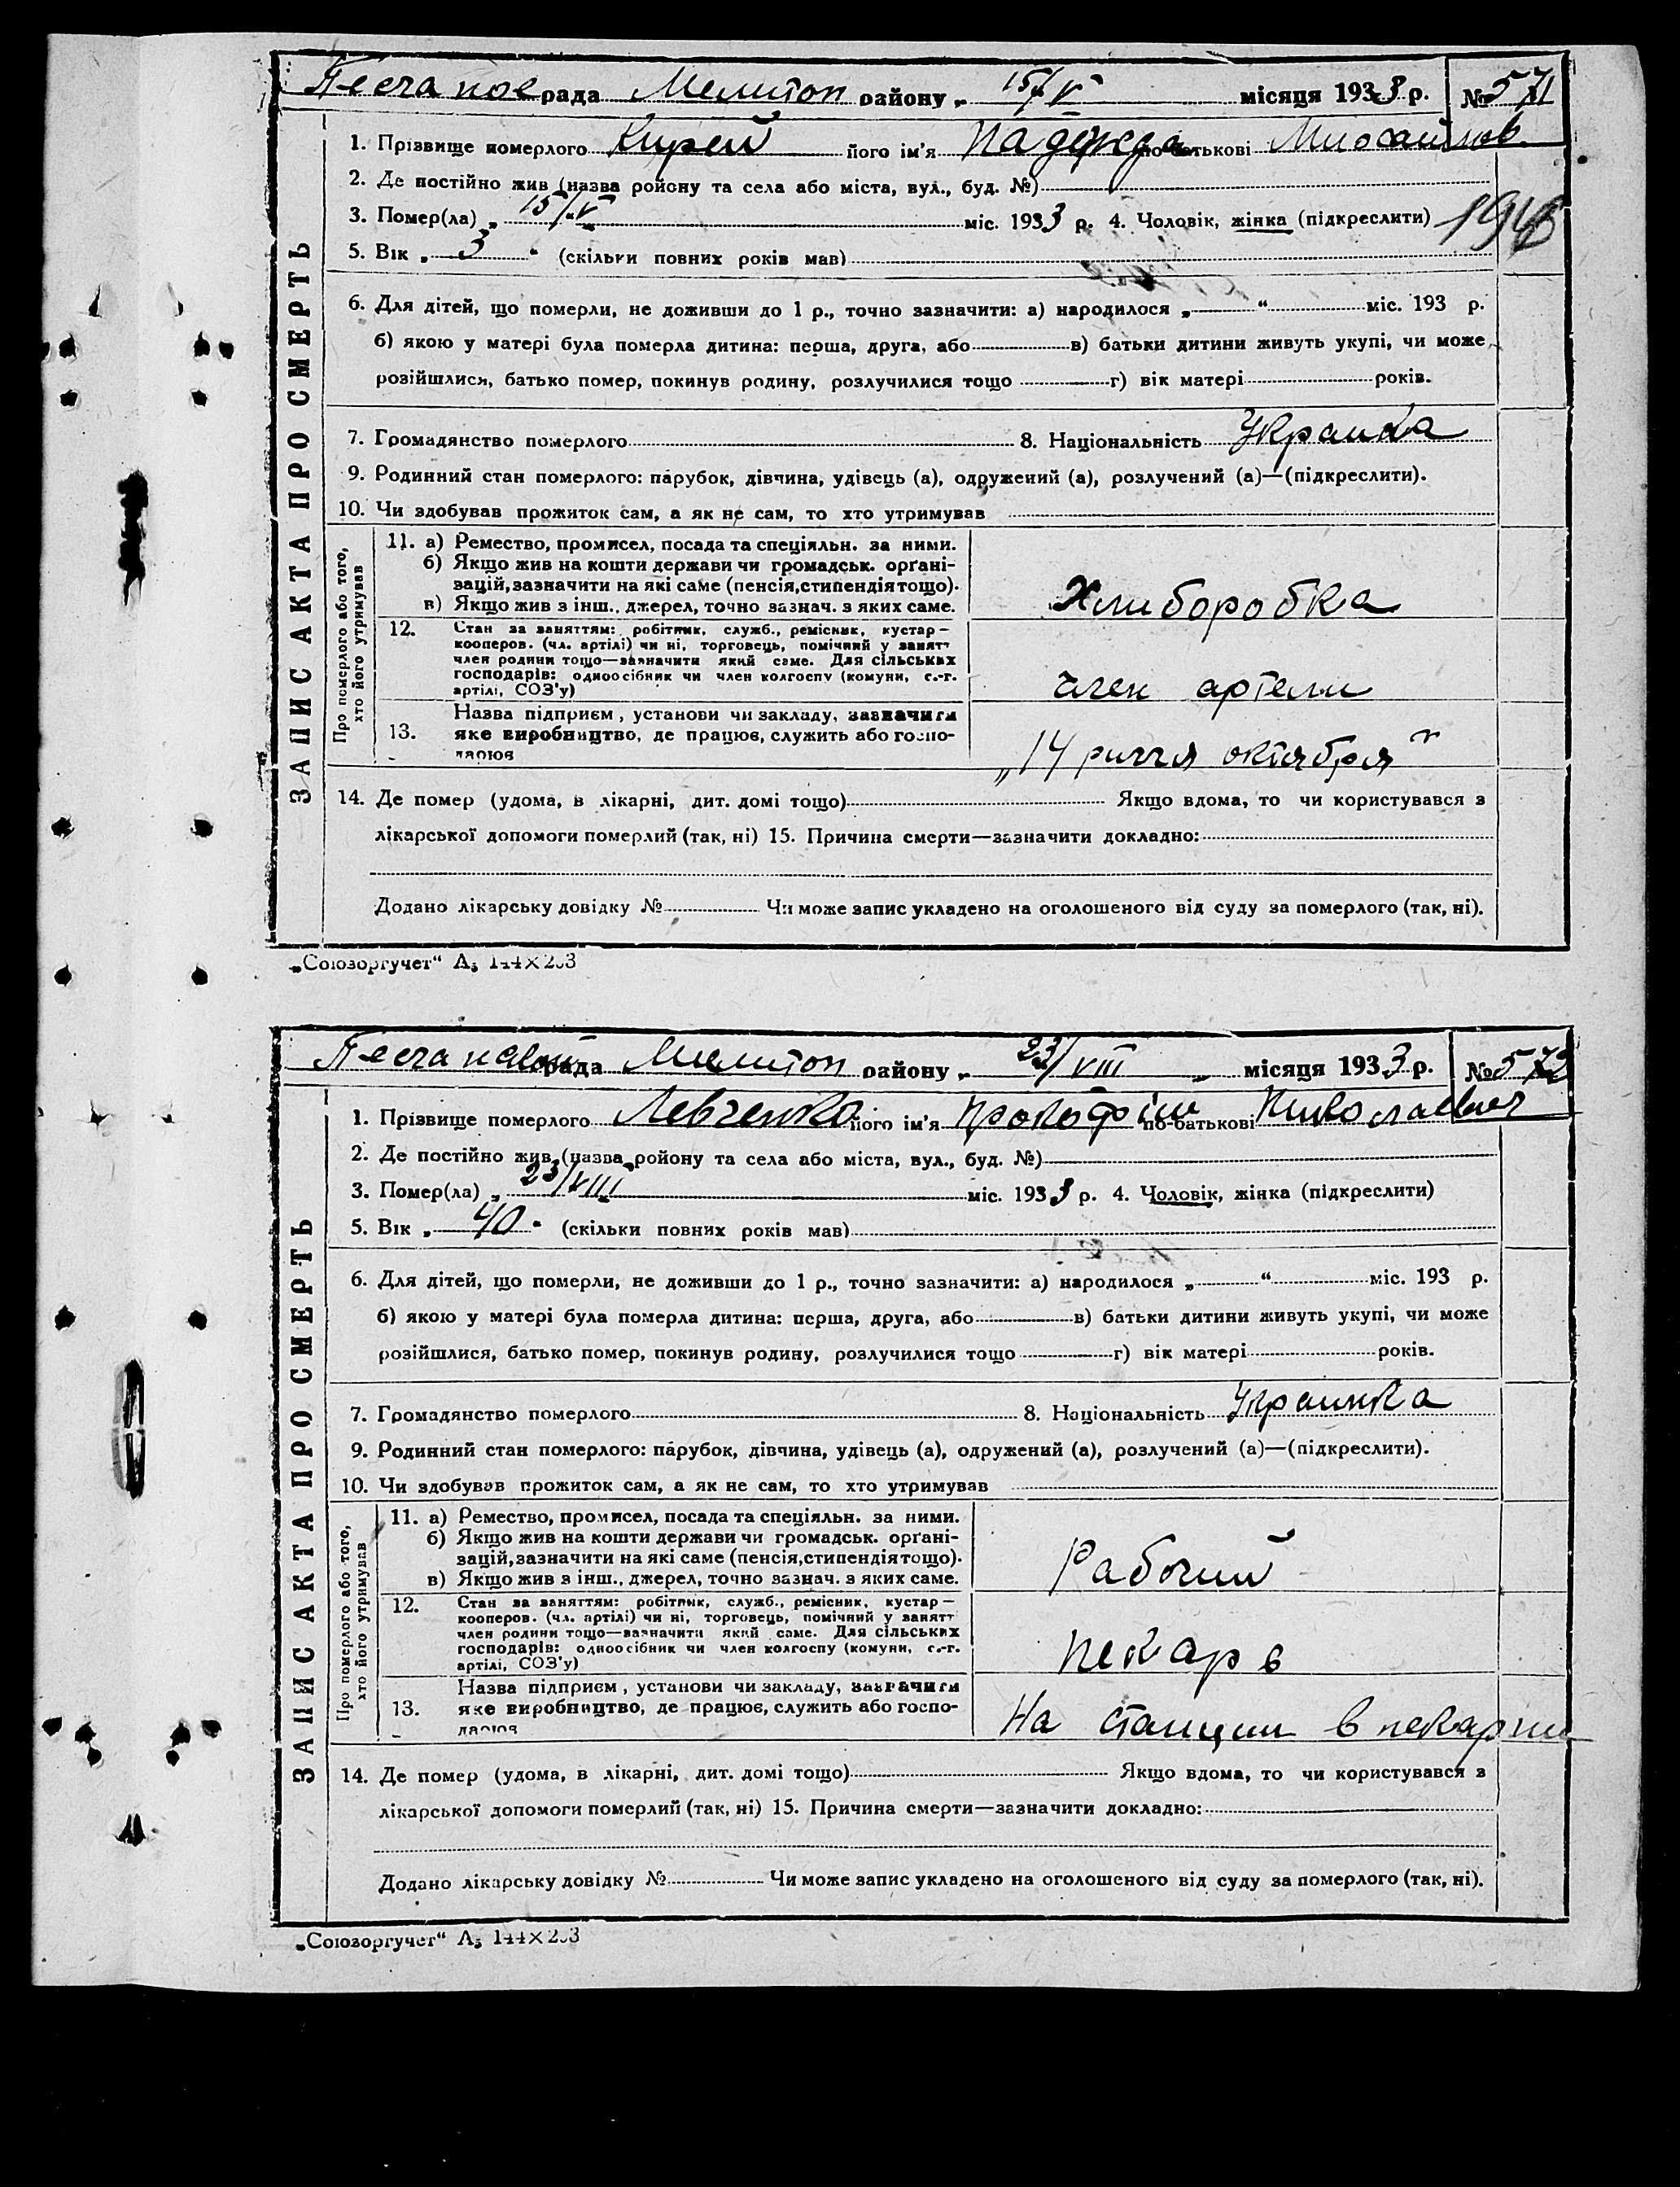 Песчаное рада Мелитоп району „ 15/V місяця 1933 р. № 571
1. Прізвище померлого Кирей його ім'я Надежда по-батькові
2. Де постійно жив (назва ройону та села або міста, вул., буд. №)
3. Помер(ла) „ 15/V " міс. 1933 р. 4. Чоловік, жінка (підкреслити)
5. Вік „ 3 " (скільки повних років мав)
6. Для дітей, що померли, не доживши до 1 р., точно зазначити: а) народилося „ “ міс. 193 р.
б) якою у матері була померла дитина: перша, друга, або в) батьки дитини живуть укупі, чи може
розійшлися, батько помер, покинув родину, розлучилися тощо г) вік матері років.
7. Громадянство померлого 8. Національність Украинка
9. Родинний стан померлого: парубок, дівчина, удівець (а), одружений (а), розлучений (а)—(підкреслити).
10. Чи здобував прожиток сам, а як не сам, то хто утримував
ЗАПИС АКТА ПРО СМЕРТЬ
Про померлого або того,
хто його утримував
11. а) Ремество, промисел, посада та спеціяльн. за ними.
б) Якщо жив на кошти держави чи громадськ. орґані-
зацій, зазначити на які саме (пенсія, стипендія тощо).
в) Якщо жив з інш., джерел, точно зазнач. з яких саме.
Хлиборобка
12. Стан за заняттям: робітник, служб., ремісник, кустар—
кооперов. (чл. артілі) чи ні, торговець, помічний у занятт
член родини тощо—зазначити який саме. Для сільських
господарів: одноосібник чи член колгоспу (комуни, с.-г.
артілі, СОЗ'у)
член артели
13. Назва підприєм, установи чи закладу, зазначити
яке виробництво, де працює, служить або госпо-
дарює
„14 риччя октября"
14. Де помер (удома, в лікарні, дит. домі тощо) Якщо вдома, то чи користувався з
лікарської допомоги померлий (так, ні) 15. Причина смерти—зазначити докладно:
Додано лікарську довідку № Чи може запис укладено на оголошеного від суду за померлого (так, ні).
„Союзоргучет“ А5 144×203
рада Мелитоп району „ 23/VIII місяця 1933 р. № 572
1. Прізвище померлого Левченко його ім'я Прокофий по-батькові Николаевич
2. Де постійно жив (назва ройону та села або міста, вул., буд. №)
3. Помер(ла) „ 23/VIII міс. 1933 р. 4. Чоловік, жінка (підкреслити)
5. Вік „ 40 " (скільки повних років мав)
6. Для дітей, що померли, не доживши до 1 р., точно зазначити: а) народилося „ “ міс. 193 р.
б) якою у матері була померла дитина: перша, друга, або в) батьки дитини живуть укупі, чи може
розійшлися, батько помер, покинув родину, розлучилися тощо г) вік матері років.
7. Громадянство померлого 8. Національність Украинка
9. Родинний стан померлого: парубок, дівчина, удівець (а), одружений (а), розлучений (а)—(підкреслити).
10. Чи здобував прожиток сам, а як не сам, то хто утримував
ЗАПИС АКТА ПРО СМЕРТЬ
Про померлого або того,
хто його утримував
11. а) Ремество, промисел, посада та спеціяльн. за ними.
б) Якщо жив на кошти держави чи громадськ. орґані-
зацій, зазначити на які саме (пенсія, стипендія тощо).
в) Якщо жив з інш., джерел, точно зазнач. з яких саме.
Рабочий
12. Стан за заняттям: робітник, служб., ремісник, кустар—
кооперов. (чл. артілі) чи ні, торговець, помічний у занятт
член родини тощо—зазначити який саме. Для сільських
господарів: одноосібник чи член колгоспу (комуни, с.-г.
артілі, СОЗ'у)
пекарь
13. Назва підприєм, установи чи закладу, зазначити
яке виробництво, де працює, служить або госпо-
дарює
На станции в пекарни
14. Де помер (удома, в лікарні, дит. домі тощо) Якщо вдома, то чи користувався з
лікарської допомоги померлий (так, ні) 15. Причина смерти—зазначити докладно:
Додано лікарську довідку № Чи може запис укладено на оголошеного від суду за померлого (так, ні).
„Союзоргучет“ А5 144×203